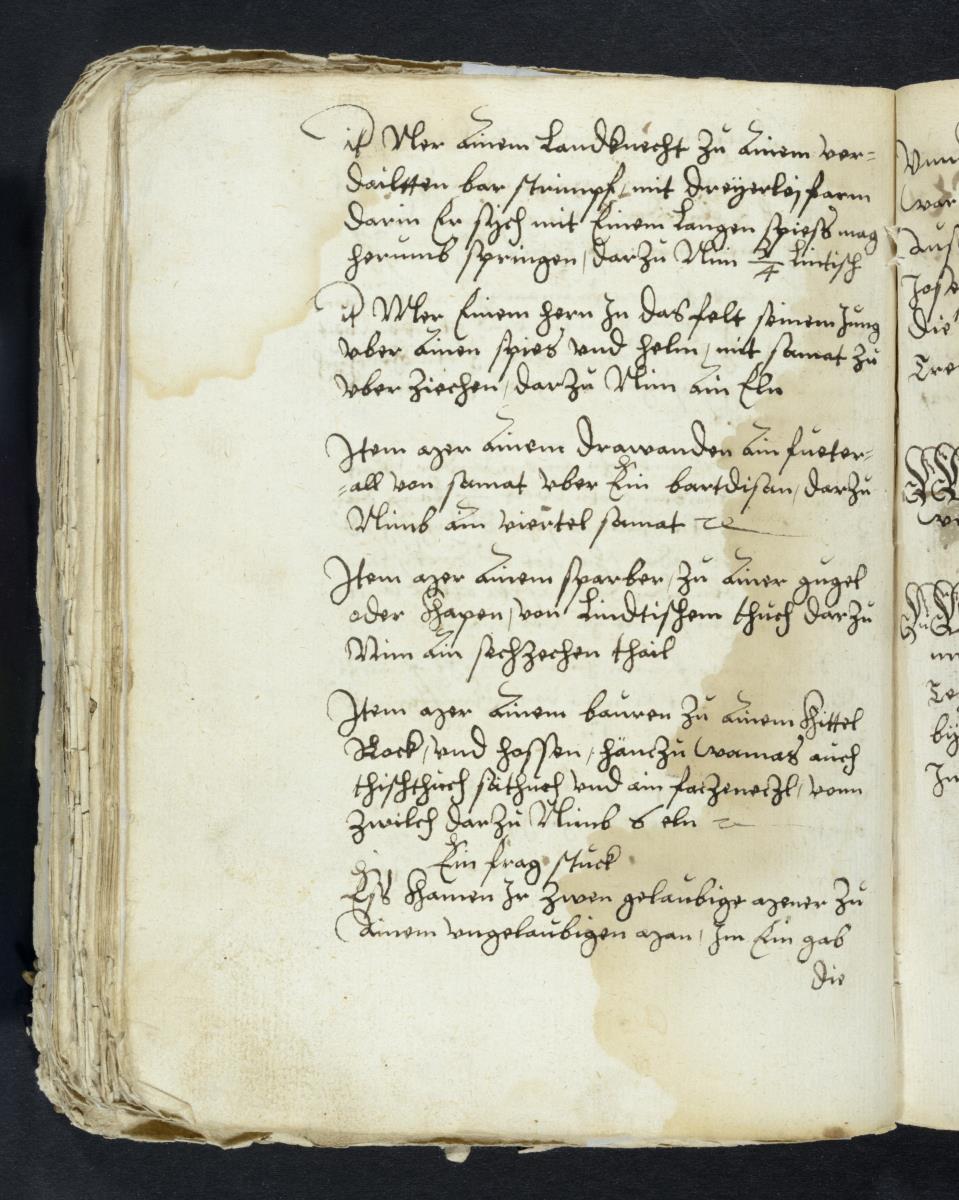 it Mer ainem Landknecht zu ainem ver=
dailtten bar strimpf, mit dreyerlej farm
darin Er sych mit Einem Langen spiess mag
herumb springen, darzu Nim 3/4 Lintisch
it Mer Einem hern In das felt seinem Jung
vber ainen spies vnd helm, mit samat zu
vber ziechen, darzu Nim ain Eln
Item mer ainem drawanden ain fueter=
=all von samat vber Ein bartdisan, darzu
Nimb ain viertel samat
Item mer ainem sparber, zu ainer gugel
oder khapen, von Lindtischem thuch darzu
Nim ain sechzechen thail
Item mer ainem bauren zu ainem khittel
Rock, vnd hossen, hänczu wamas auch
thischthuch säthuch vnd ain faczeneczl, vonn
zwilch darzu Nimb 6 eln
Ein frag stuck
Ess khamen Ir zwen gelaubige mener zu
ainem vngelaubigen man, Im Ein gab
die